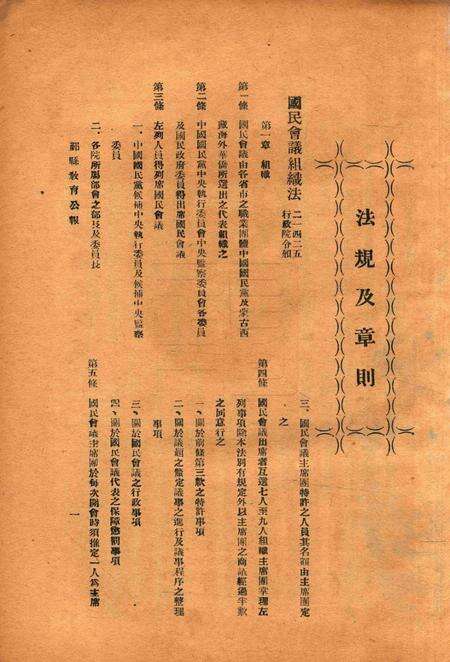 法規及章則
國民會議組織法
二一四二五
行政院令頒
第一章 組織
第一條 國民會議由各省市之職業團體中國國民黨及蒙古西
藏海外華僑所選出之代表組織之
第二條 中國國民黨中央執行委員會中央監察委員會各委員
及國民政府委員得出席國民會議
第三條 左列人員得列席國民會議
一、中國國民黨候補中央執行委員及候補中央監察
委員
二、各院所屬部會之部長及委員長
縣教育公報
三、國民會議主席團特許之人員其名額由主席團定
之
第四條 國民會議出席者互選七人至九人組織主席團掌理左
列事項除本法別有規定外以主席團之商議經過半數
之同意行之
一、關於前條第三款之特許事項
二、關於議題之整定議事之進行及議事程序之整理
事項
三、關於國民會議之行政事項
四、關於國民會議代表之保障懲罰事項
第五條 國民會議主席團於每次開會時須推定一人為主席
一